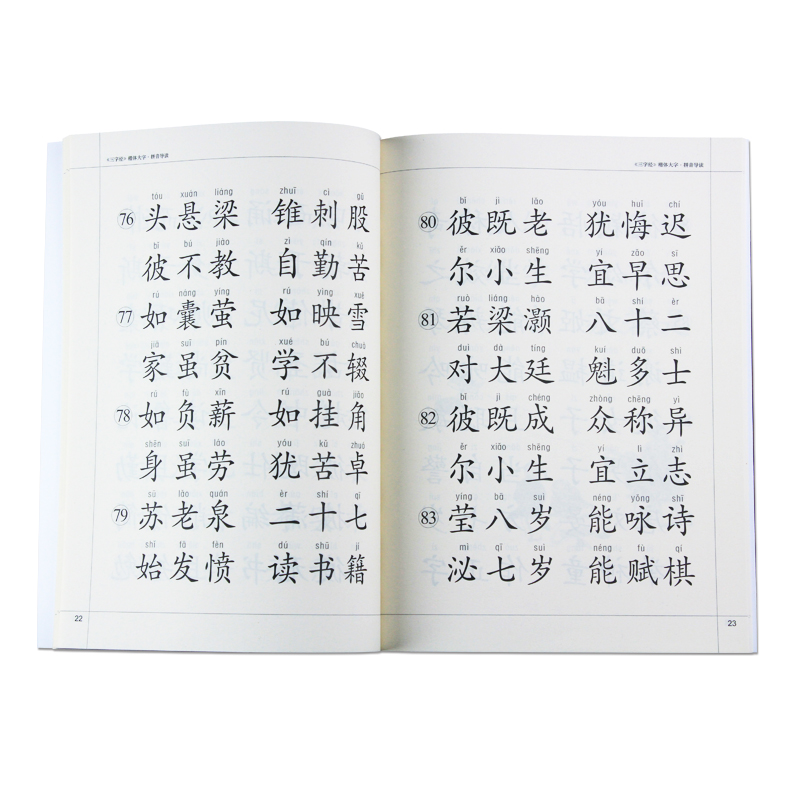 《三字经》楷体大字·拼音导读
tóu xuán liáng zhuī cì gǔ
76 头悬梁 锥刺股
bǐ bú jiào zì qín kǔ
彼不教 自勤苦
rú náng yíng rú yìng xuě
77 如囊萤 如映雪
jiā suī pín xué bú chuò
家虽贫 学不辍
rú fù xīn rú guà jiǎo
78 如负薪 如挂角
shēn suī láo yóu kǔ zhuó
身虽劳 犹苦卓
sū lǎo quán èr shí qī
79 苏老泉 二十七
shǐ fā fèn dú shū jí
始发愤 读书籍
22
《三字经》楷体大字·拼音导读
bǐ jì lǎo yóu huǐ chí
80 彼既老 犹悔迟
ěr xiǎo shēng yí zǎo sī
尔小生 宜早思
ruò liáng hào bā shí èr
81 若梁灏 八十二
duì dà tíng kuí duō shì
对大廷 魁多士
bǐ jì chéng zhòng chēng yì
82 彼既成 众称异
ěr xiǎo shēng yí lì zhì
尔小生 宜立志
yíng bā suì néng yǒng shī
83 莹八岁 能咏诗
mì qī suì néng fù qí
泌七岁 能赋棋
23